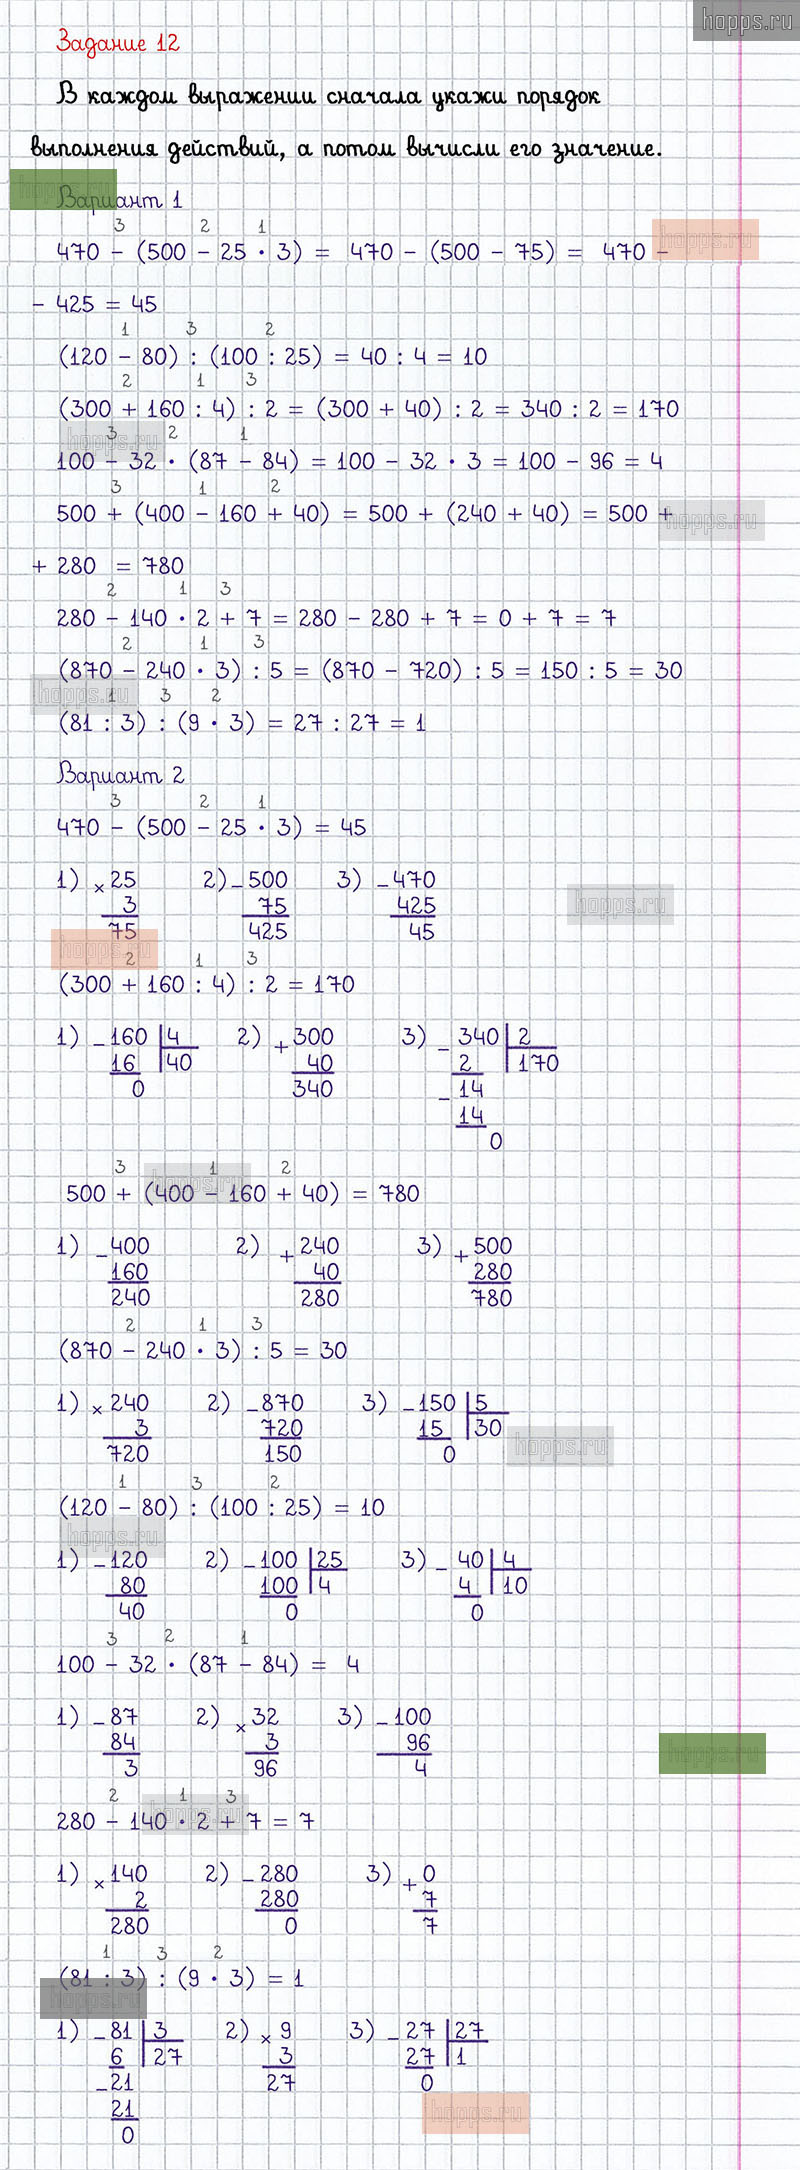 hopps.ru
Задание 12
В каждом выражении сначала укажи порядок
выполнения действий, а потом вычисли его значение.
hopps.ru
Вариант 1
3 2 1
470 - (500 - 25 · 3) = 470 - (500 - 75) = 470 -
hopps.ru
- 425 = 45
1 3 2
(120 - 80) : (100 : 25) = 40 : 4 = 10
2 1 3
(300 + 160 : 4) : 2 = (300 + 40) : 2 = 340 : 2 = 170
hopps.ru
3 2 1
100 - 32 · (87 - 84) = 100 - 32 · 3 = 100 - 96 = 4
3 1 2
500 + (400 - 160 + 40) = 500 + (240 + 40) = 500 +
hopps.ru
+ 280 = 780
2 1 3
280 - 140 · 2 + 7 = 280 - 280 + 7 = 0 + 7 = 7
2 1 3
(870 - 240 · 3) : 5 = (870 - 720) : 5 = 150 : 5 = 30
hopps.ru
1 3 2
(81 : 3) : (9 · 3) = 27 : 27 = 1
Вариант 2
3 2 1
470 - (500 - 25 · 3) = 45
1) × 25 2) - 500 3) - 470
3 75 425
75 425 45
hopps.ru
hopps.ru
2 1 3
(300 + 160 : 4) : 2 = 170
1) - 160 4 2) + 300 3) - 340 2
16 40 40 2 170
0 340 - 14
14
0
3 1 2
hopps.ru
500 + (400 - 160 + 40) = 780
1) - 400 2) + 240 3) + 500
160 40 280
240 280 780
2 1 3
(870 - 240 · 3) : 5 = 30
1) × 240 2) - 870 3) - 150 5
3 720 15 30
720 150 0
hopps.ru
1 3 2
(120 - 80) : (100 : 25) = 10
hopps.ru
1) - 120 2) - 100 25 3) - 40 4
80 100 4 4 10
40 0 0
3 2 1
100 - 32 · (87 - 84) = 4
1) - 87 2) × 32 3) - 100
84 3 96
3 96 4
hopps.ru
2 1 3
280 - 140 · 2 + 7 = 7
hopps.ru
1) × 140 2) - 280 3) + 0
2 280 7
280 0 7
1 3 2
(81 : 3) : (9 · 3) = 1
hopps.ru
1) - 81 3 2) × 9 3) - 27 27
6 27 3 27 1
- 21 27 0
21
0
hopps.ru